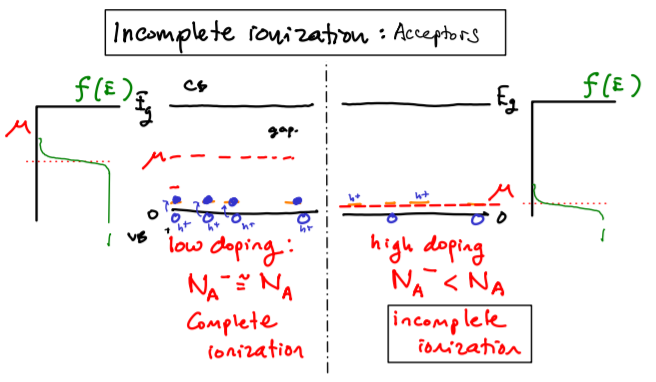 Incomplete ionization : Acceptors
f(E)
μ
1
Eg
CB
gap.
μ
0
VB
h+ h+ h+ h+
low doping :
NA⁻ ≅ NA
Complete
ionization
Eg
f(E)
h+ h+
μ
0
high doping
NA⁻ < NA
incomplete
ionization
1